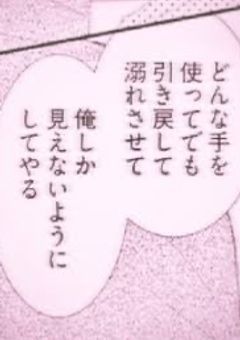 どんな手を
使ってでも
引き戻して
溺れさせて
俺しか
見えないように
してやる